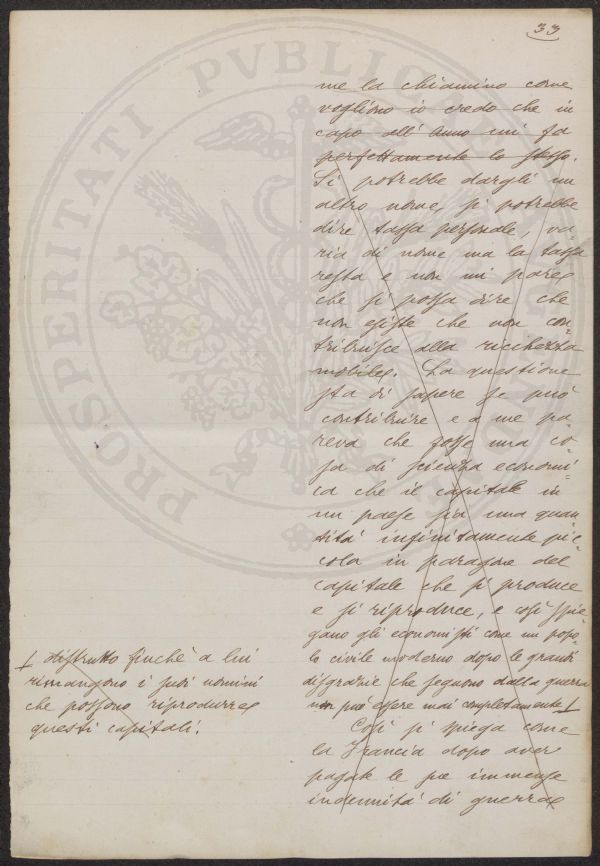 33
me la chiamino come
vogliono io credo che in
capo all'anno mi fa
perfettamente lo stesso.
Si potrebbe dargli un
altro nome, si potrebbe
dire tassa personale, va-
ria di nome ma la tassa
resta e non mi pare
che si possa dire che
non esiste che non con-
tribuisce alla ricchezza
mobile. La questione
sta di sapere se può
contribuire e a me pa-
reva che fosse una co-
sa di scienza economi-
ca che il capitale in
un paese sia una quan
tità infinitamente pic-
cola in paragone del
capitale che si produce
e si riproduce, e così spie
gano gli economisti come un popo-
lo civile moderno dopo le grandi
disgrazie che seguono dalla guerra
non può essere mai completamente
distrutto finchè a lui
rimangono i suoi uomini
che possono riprodurre
questi capitali.
Così si spiega come
la Francia dopo aver
pagate le sue immense
indennità di guerra
PROSPERITATI PVBLICAE